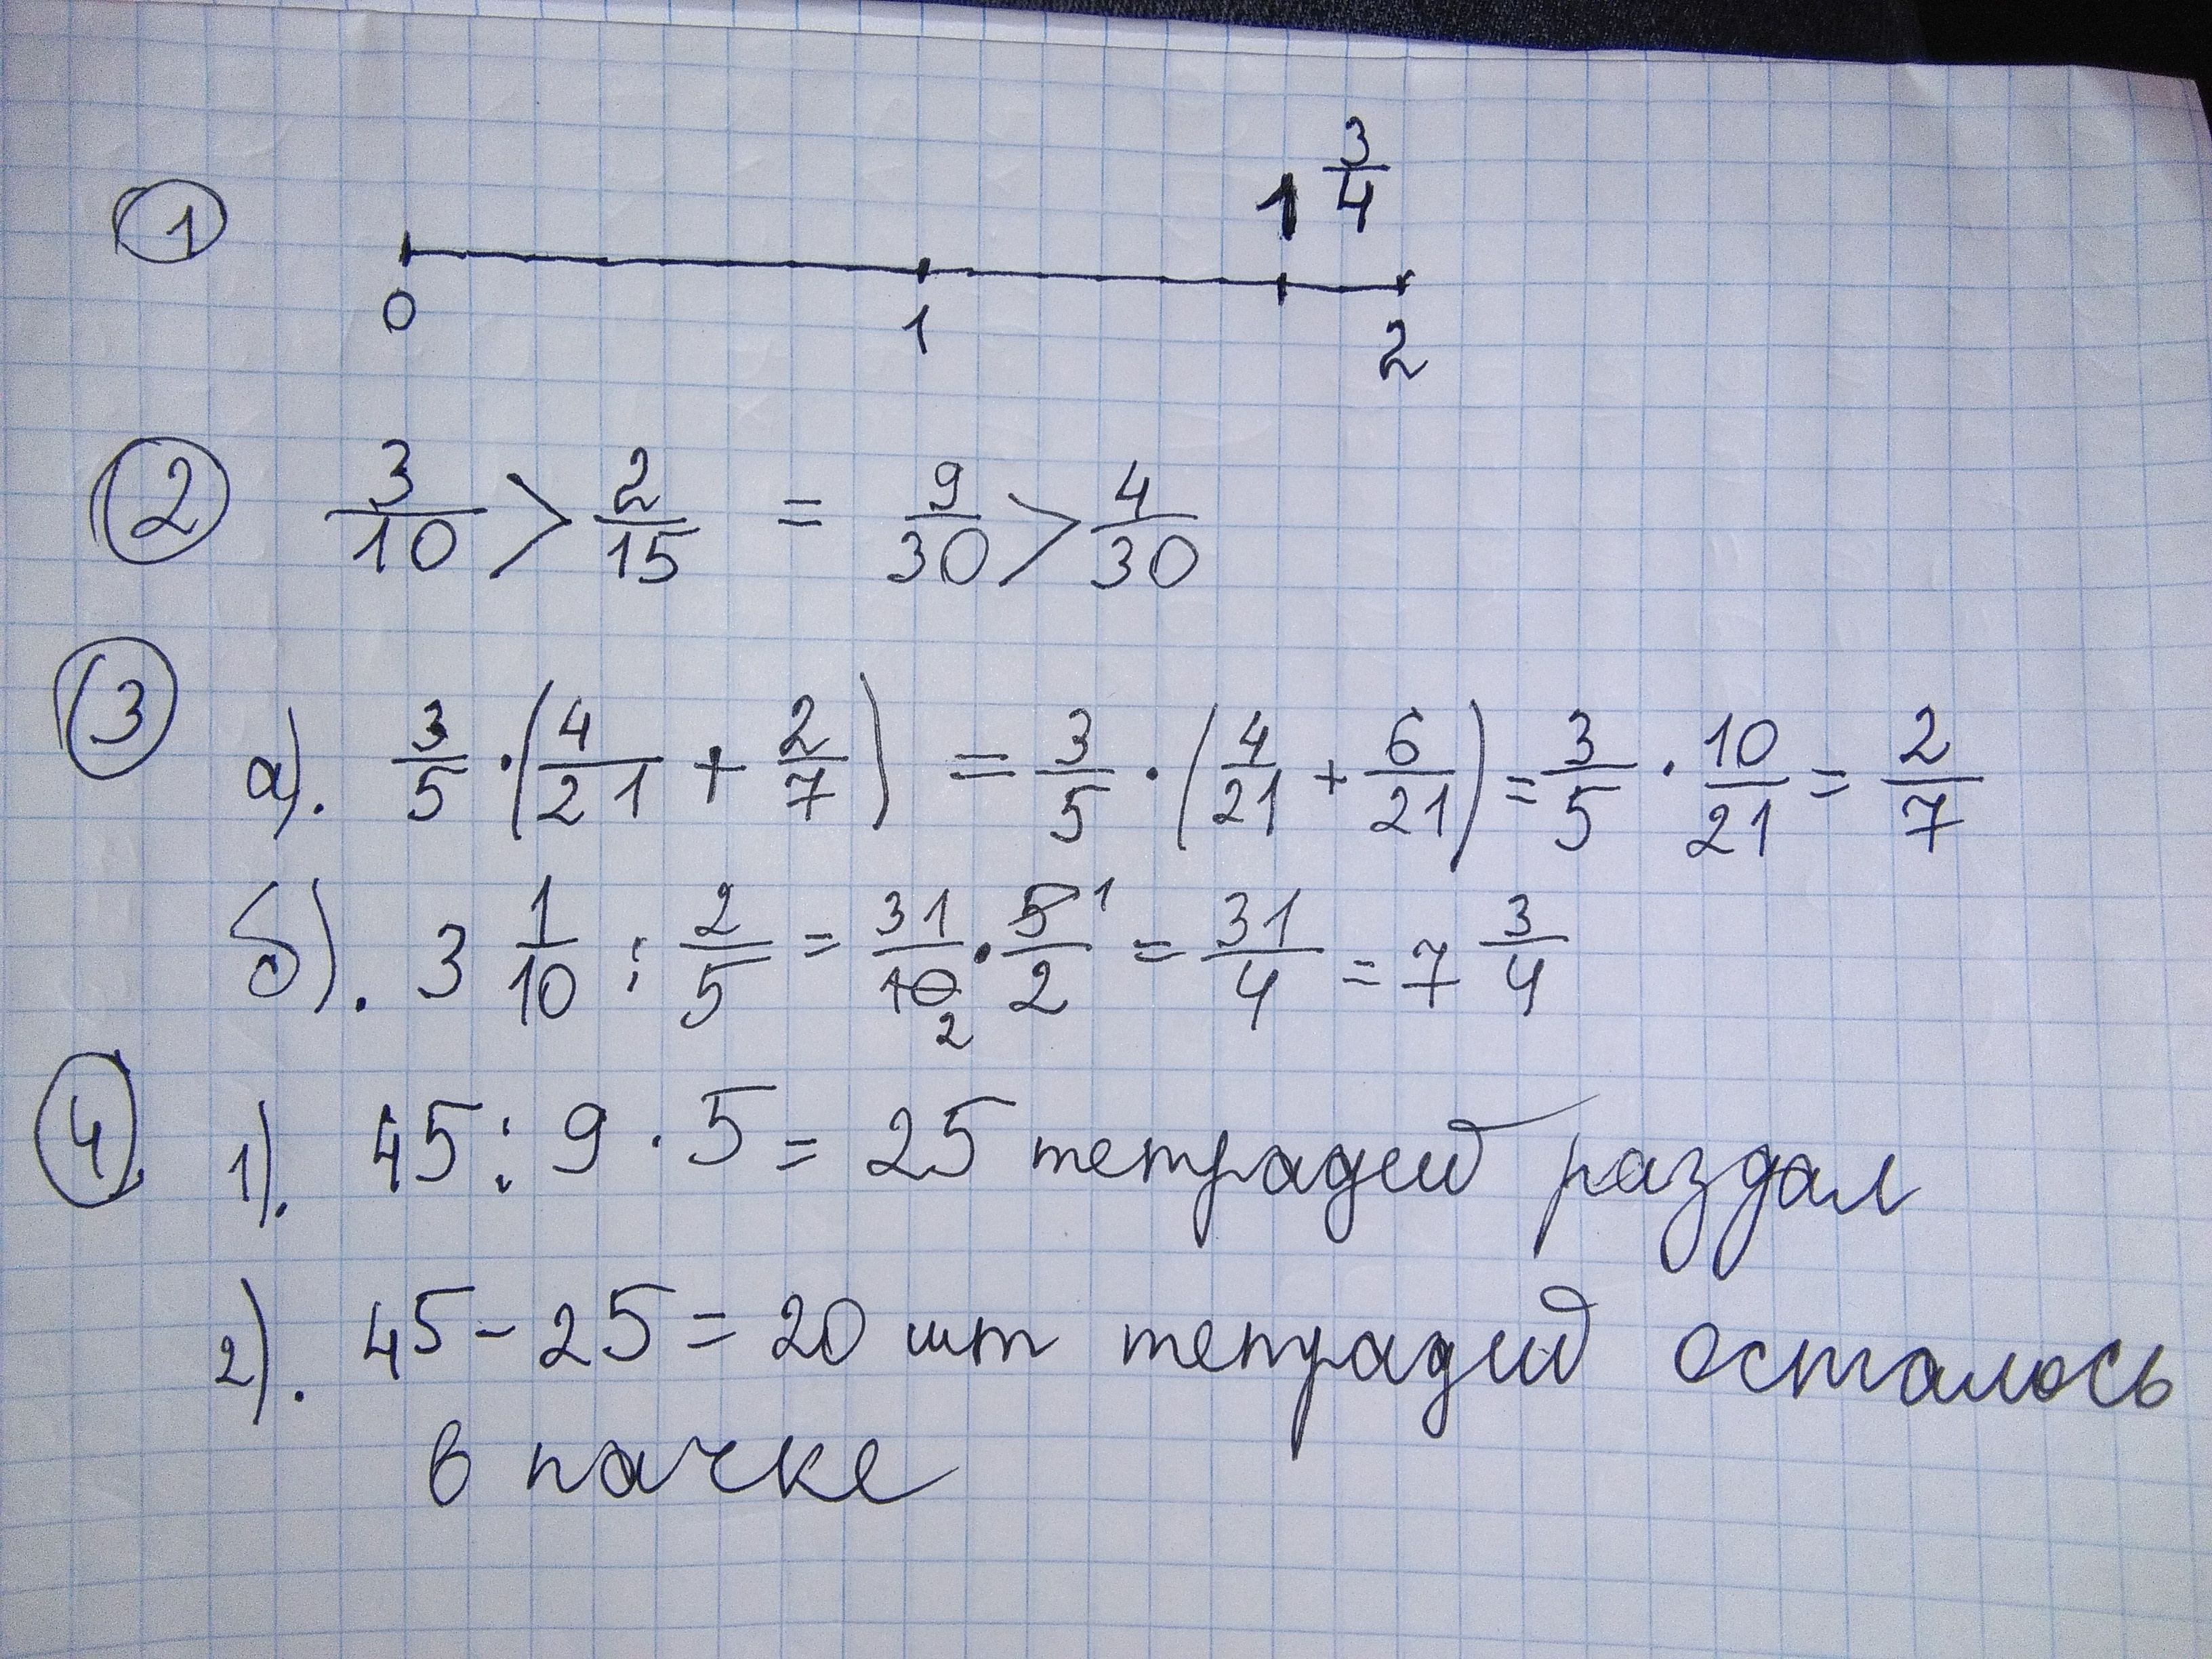 1 1 3/4
0 1 2
2 3/10 > 2/15 = 9/30 > 4/30
3 а). 3/5 · (4/21 + 2/7) = 3/5 · (4/21 + 6/21) = 3/5 · 10/21 = 2/7
б). 3 1/10 : 2/5 = 31/10 2 · 5 1/2 = 31/4 = 7 3/4
4. 1). 45 : 9 · 5 = 25 тетрадей раздал
2). 45 - 25 = 20 шт тетрадей осталось
в пачке